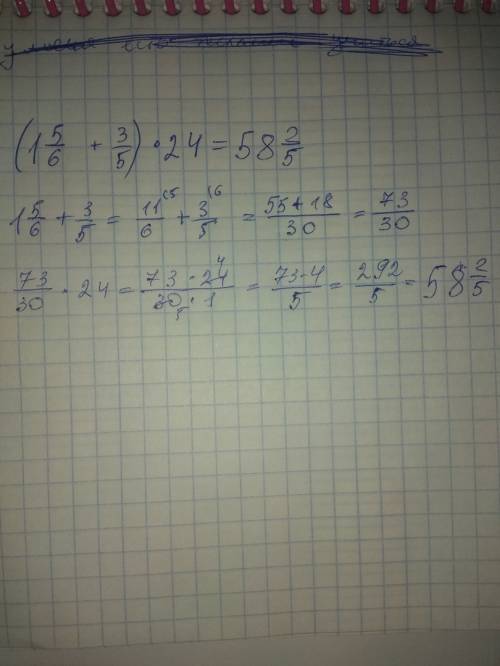 (1 5/6 + 3/5) · 24 = 58 2/5
1 5/6 + 3/5 = 11/6 (5 + 3/5 (6 = 55+18/30 = 73/30
73/30 · 24 = 73 · 24 4/30 · 1 5 = 73·4/5 = 292/5 = 58 2/5